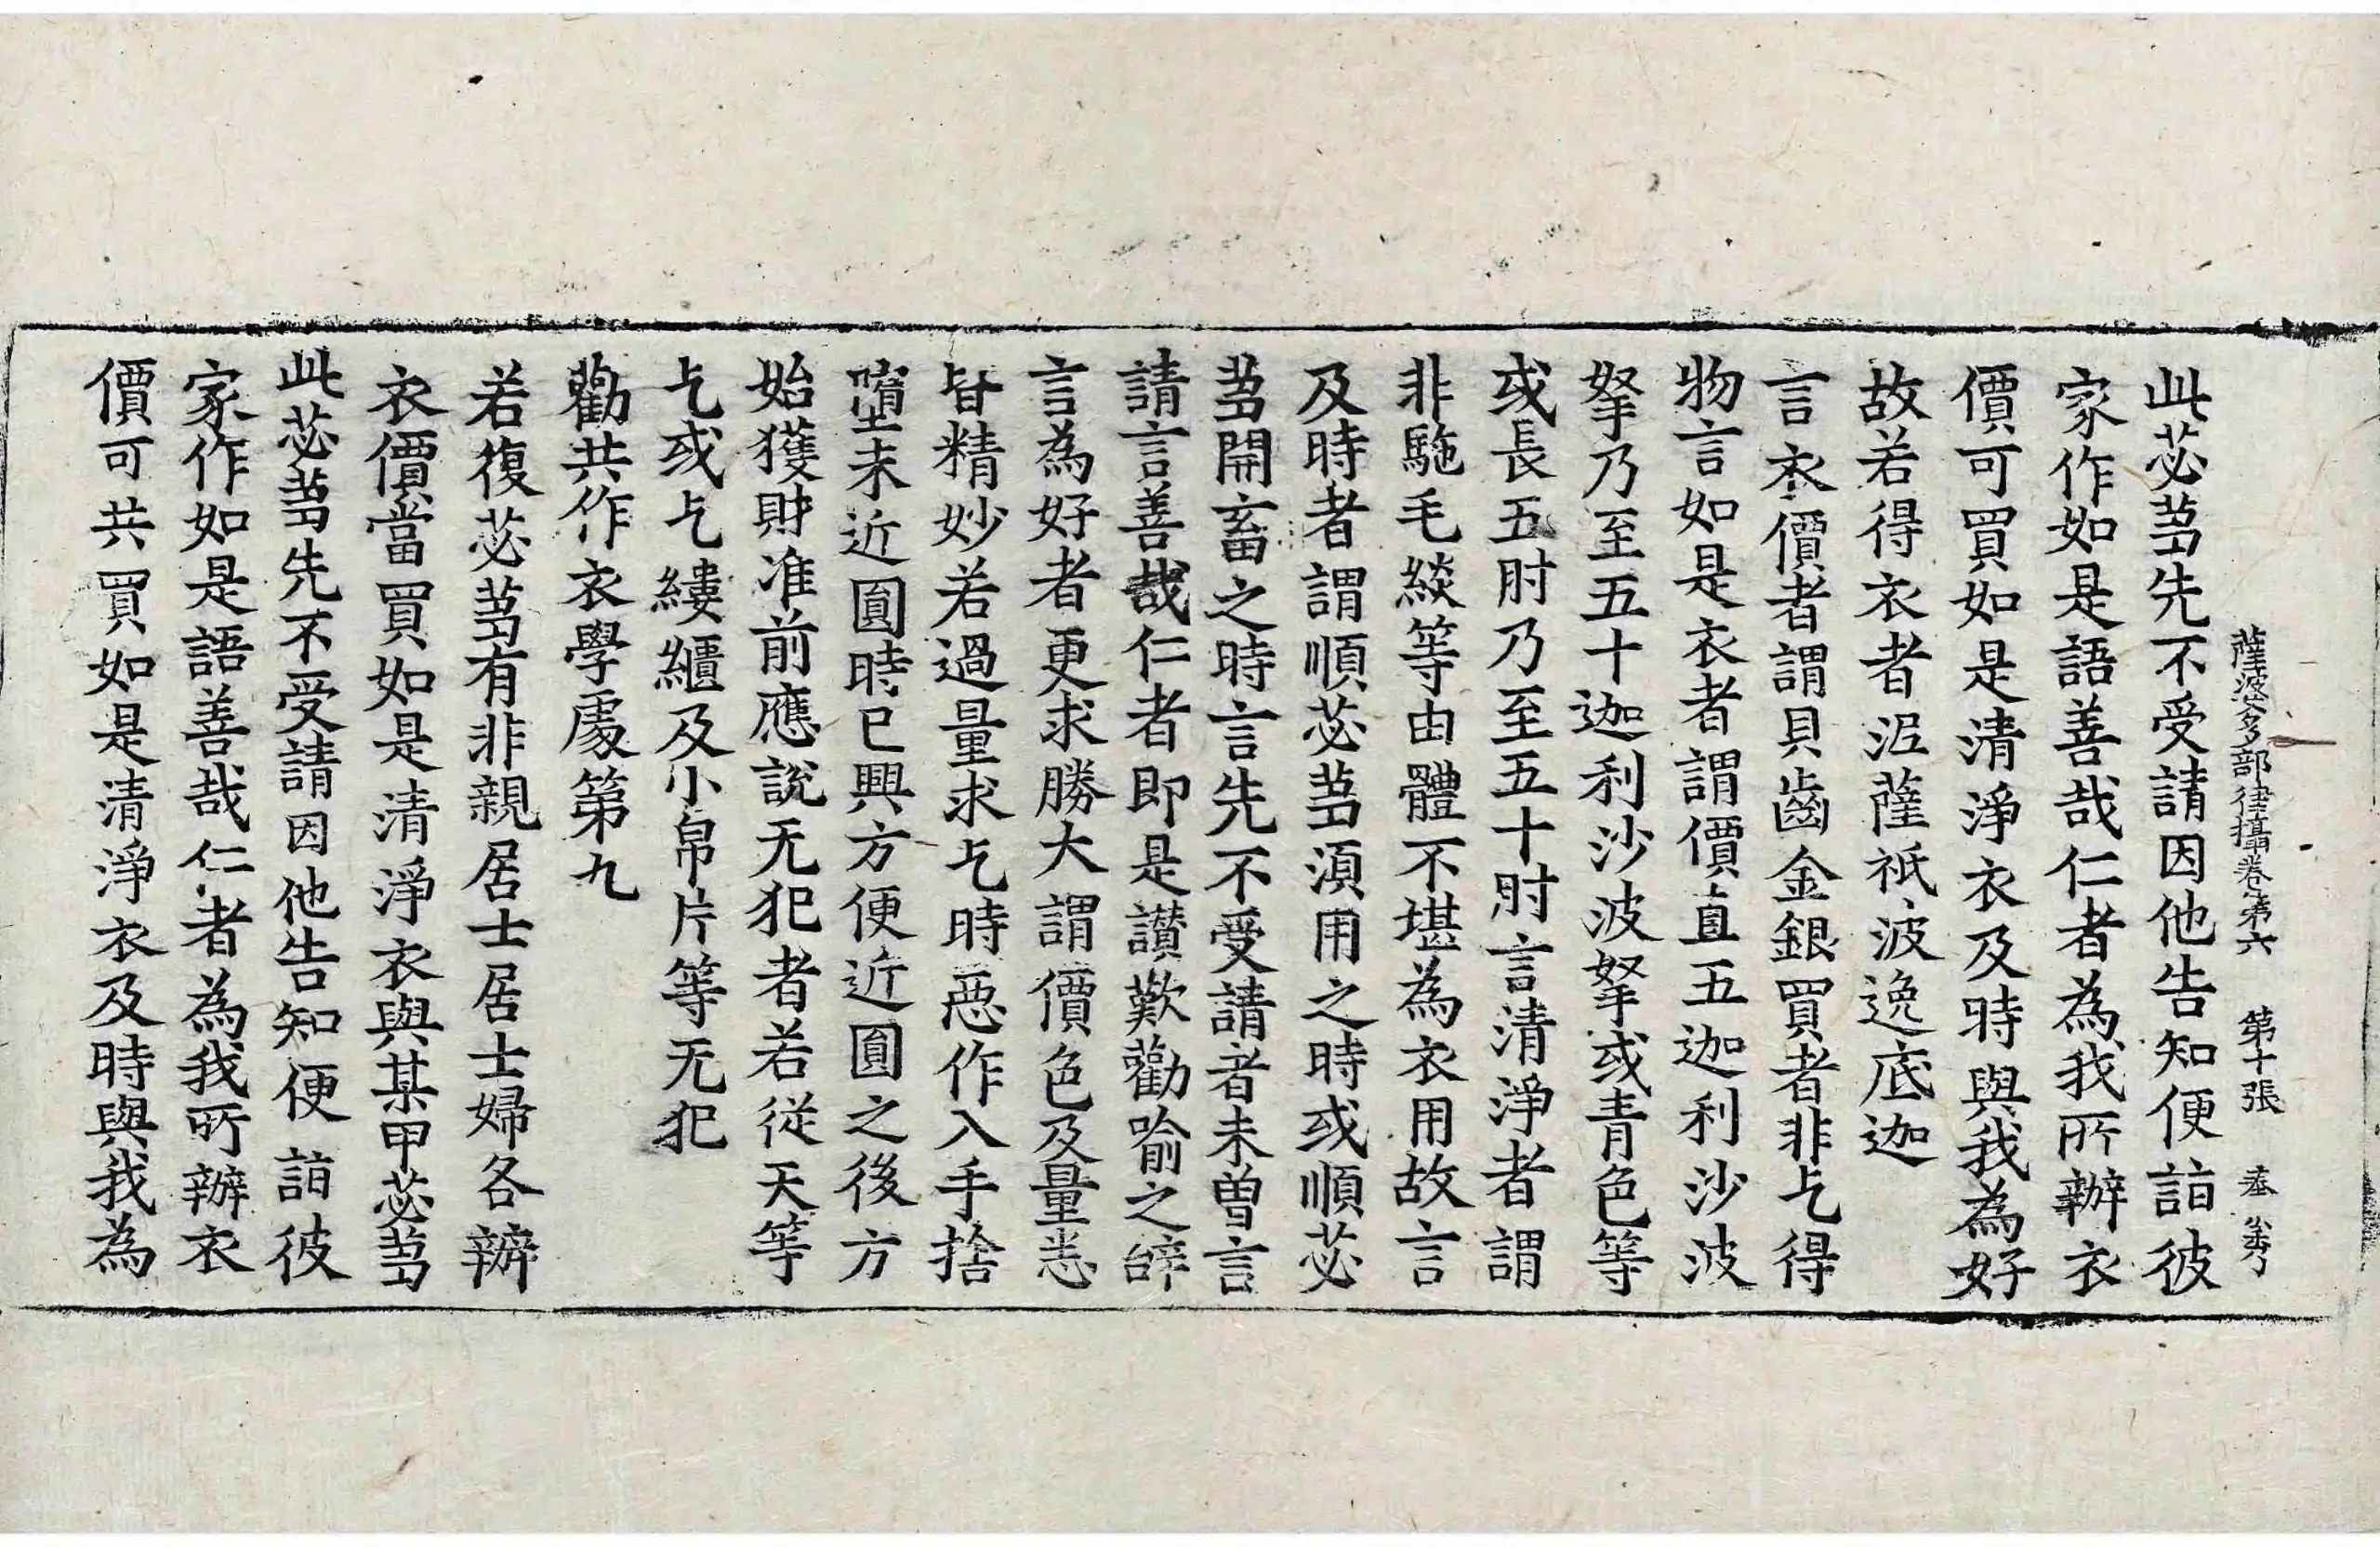 薩婆多部律攝卷第六　第十張　奉
此苾蒭先不受請因他告知便詣彼
家作如是語善哉仁者為我所辦衣
價可買如是清淨衣及時與我為好
故若得衣者泥薩祇波逸底迦
言衣價者謂貝齒金銀買者非乞得
物言如是衣者謂價直五迦利沙波
拏乃至五十迦利沙波拏或青色等
或長五肘乃至五十肘言清淨者謂
非駞毛緂等由體不堪為衣用故言
及時者謂順苾蒭湏用之時或順苾
蒭開畜之時言先不受請者未曽言
請言善哉仁者即是讃歎勸喻之辝
言為好者更求勝大謂價色及量悉
皆精妙若過量求乞時惡作入手捨
墮未近圓時已興方便近圓之後方
始獲財准前應說无犯者若従天等
乞或乞縷繼及小帛片等无犯
勸共作衣學處第九
若復苾蒭有非親居士居士婦各辦
衣價當買如是清淨衣與某甲苾蒭
此苾蒭先不受請因他告知便詣彼
家作如是語善哉仁者為我所辦衣
價可共買如是清淨衣及時與我為